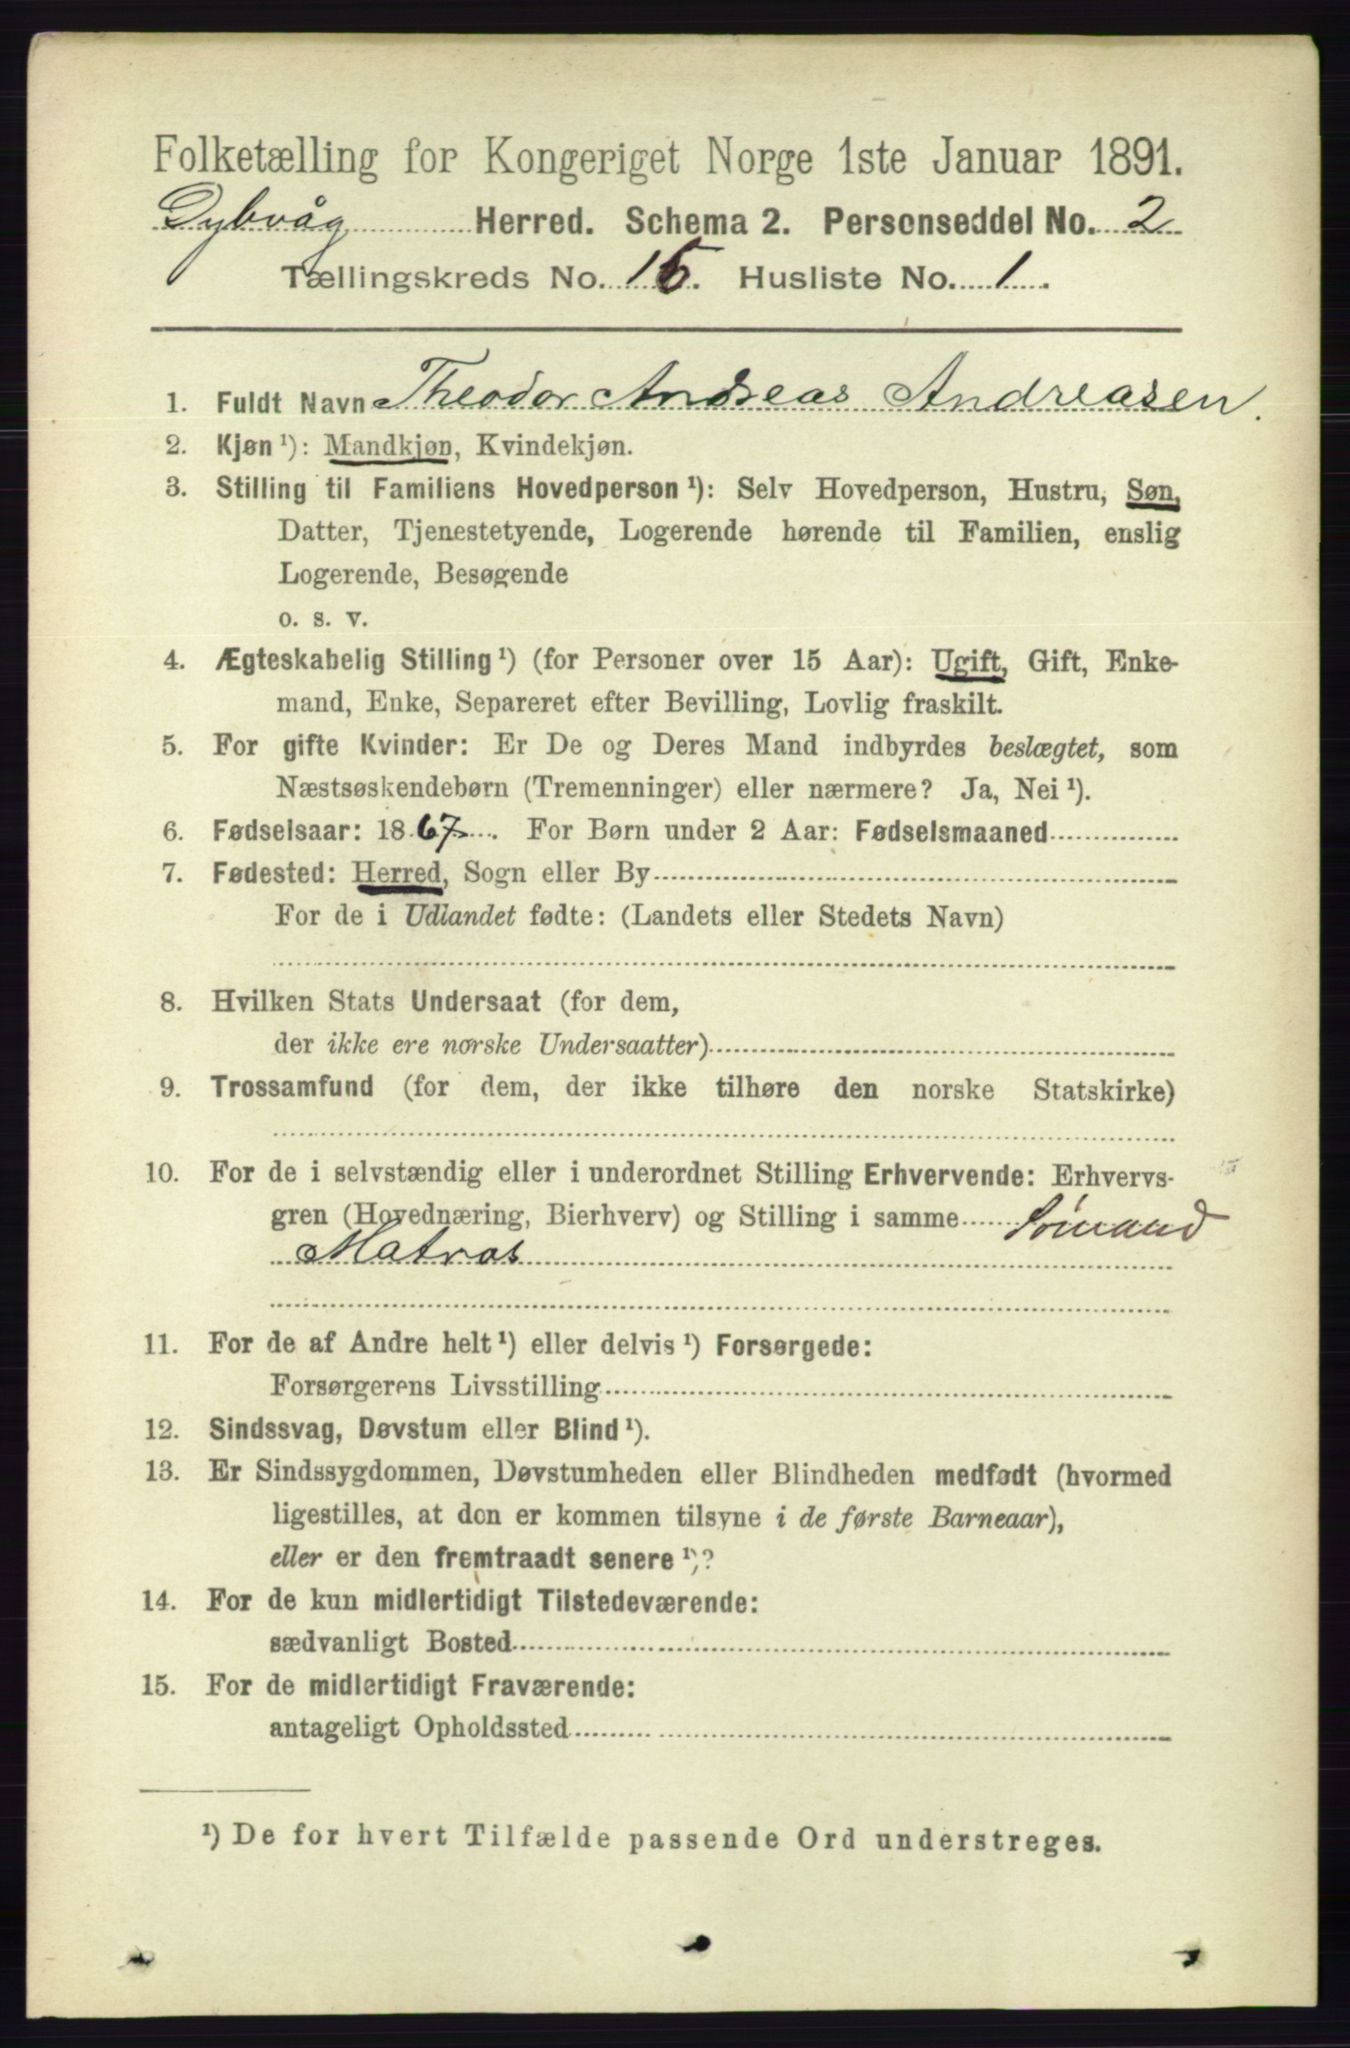 Folketælling for Kongeriget Norge 1ste Januar 1891.
Dybvåg Herred. Schema 2. Personseddel No. 2
Tællingskreds No. 15. Husliste No. 1.
1. Fuldt Navn Theodor Andreas Andreasen.
2. Kjøn ¹): Mandkjøn, Kvindekjøn.
3. Stilling til Familiens Hovedperson ¹): Selv Hovedperson, Hustru, Søn,
Datter, Tjenestetyende, Logerende hørende til Familien, enslig
Logerende, Besøgende
o. s. v.
4. Ægteskabelig Stilling ¹) (for Personer over 15 Aar): Ugift, Gift, Enke-
mand, Enke, Separeret efter Bevilling, Lovlig fraskilt.
5. For gifte Kvinder: Er De og Deres Mand indbyrdes beslægtet, som
Næstsøskendebørn (Tremenninger) eller nærmere? Ja, Nei ¹).
6. Fødselsaar: 1867. For Børn under 2 Aar: Fødselsmaaned
7. Fødested: Herred, Sogn eller By
For de i Udlandet fødte: (Landets eller Stedets Navn)
8. Hvilken Stats Undersaat (for dem,
der ikke ere norske Undersaatter)
9. Trossamfund (for dem, der ikke tilhøre den norske Statskirke)
10. For de i selvstændig eller i underordnet Stilling Erhvervende: Erhvervs-
gren (Hovednæring, Bierhverv) og Stilling i samme Sömand
Matros
11. For de af Andre helt ¹) eller delvis ¹) Forsørgede:
Forsørgerens Livsstilling
12. Sindssvag, Døvstum eller Blind ¹).
13. Er Sindssygdommen, Døvstumheden eller Blindheden medfødt (hvormed
ligestilles, at den er kommen tilsyne i de første Barneaar),
eller er den fremtraadt senere ¹)?
14. For de kun midlertidigt Tilstedeværende:
sædvanligt Bosted
15. For de midlertidigt Fraværende:
antageligt Opholdssted
¹) De for hvert Tilfælde passende Ord understreges.